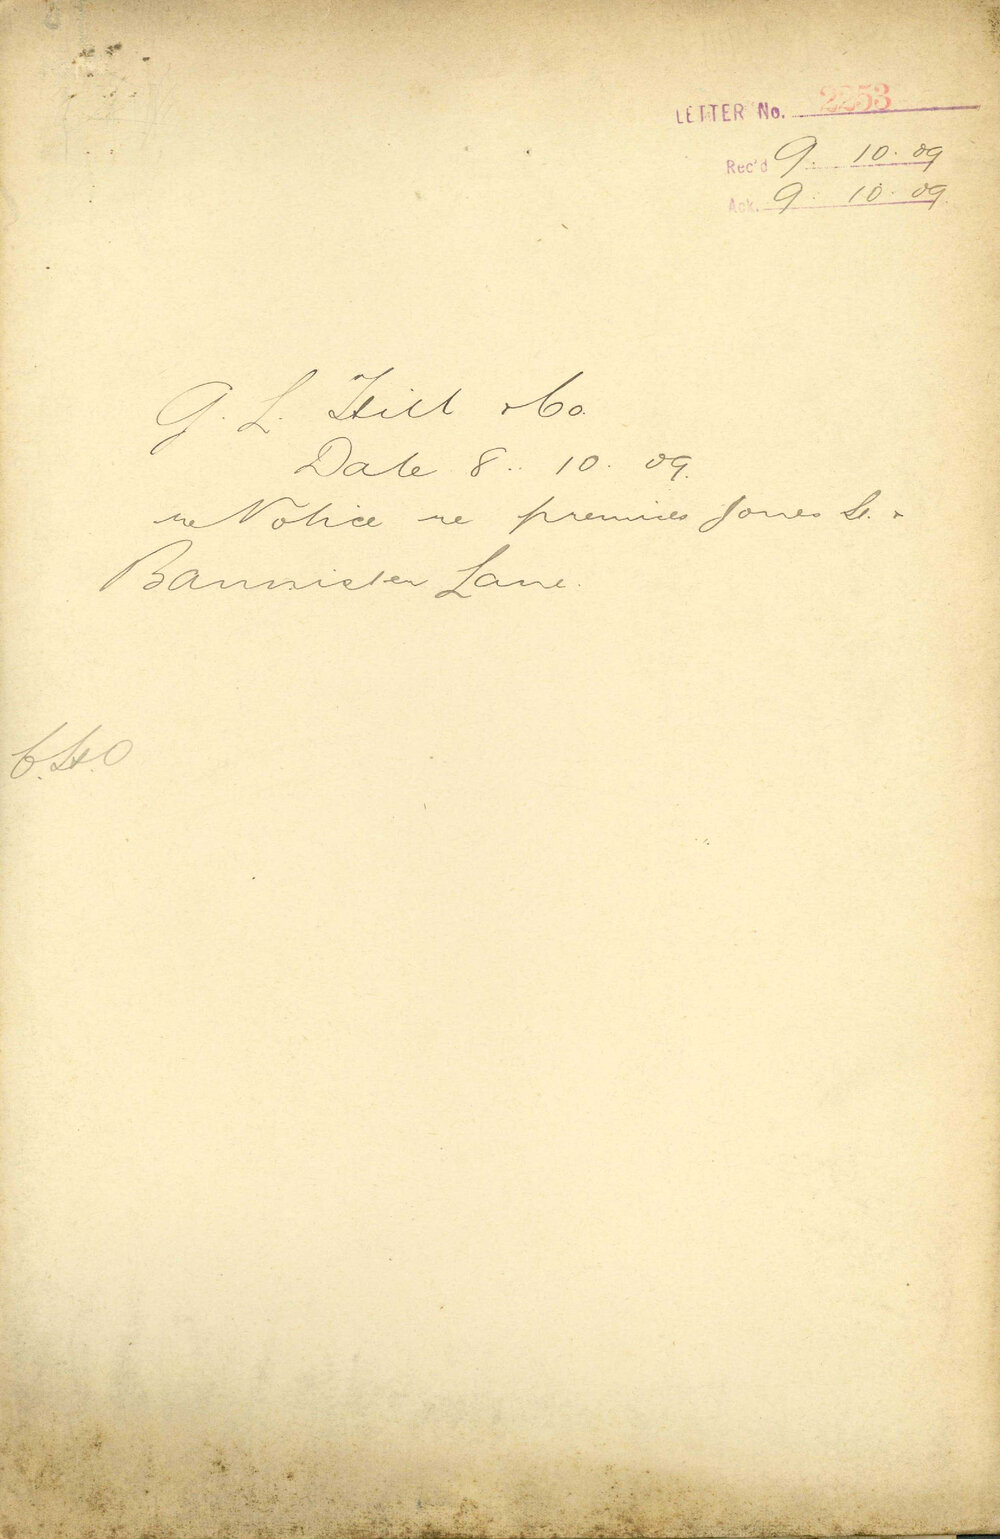 LETTER No. 2253
Rec'd 9. 10. 09
Ack. 9. 10. 09.
G. L. Hill & Co.
Date 8. 10. 09.
re Notice re premises Jones St. &
Bannister Lane.
C.H.O